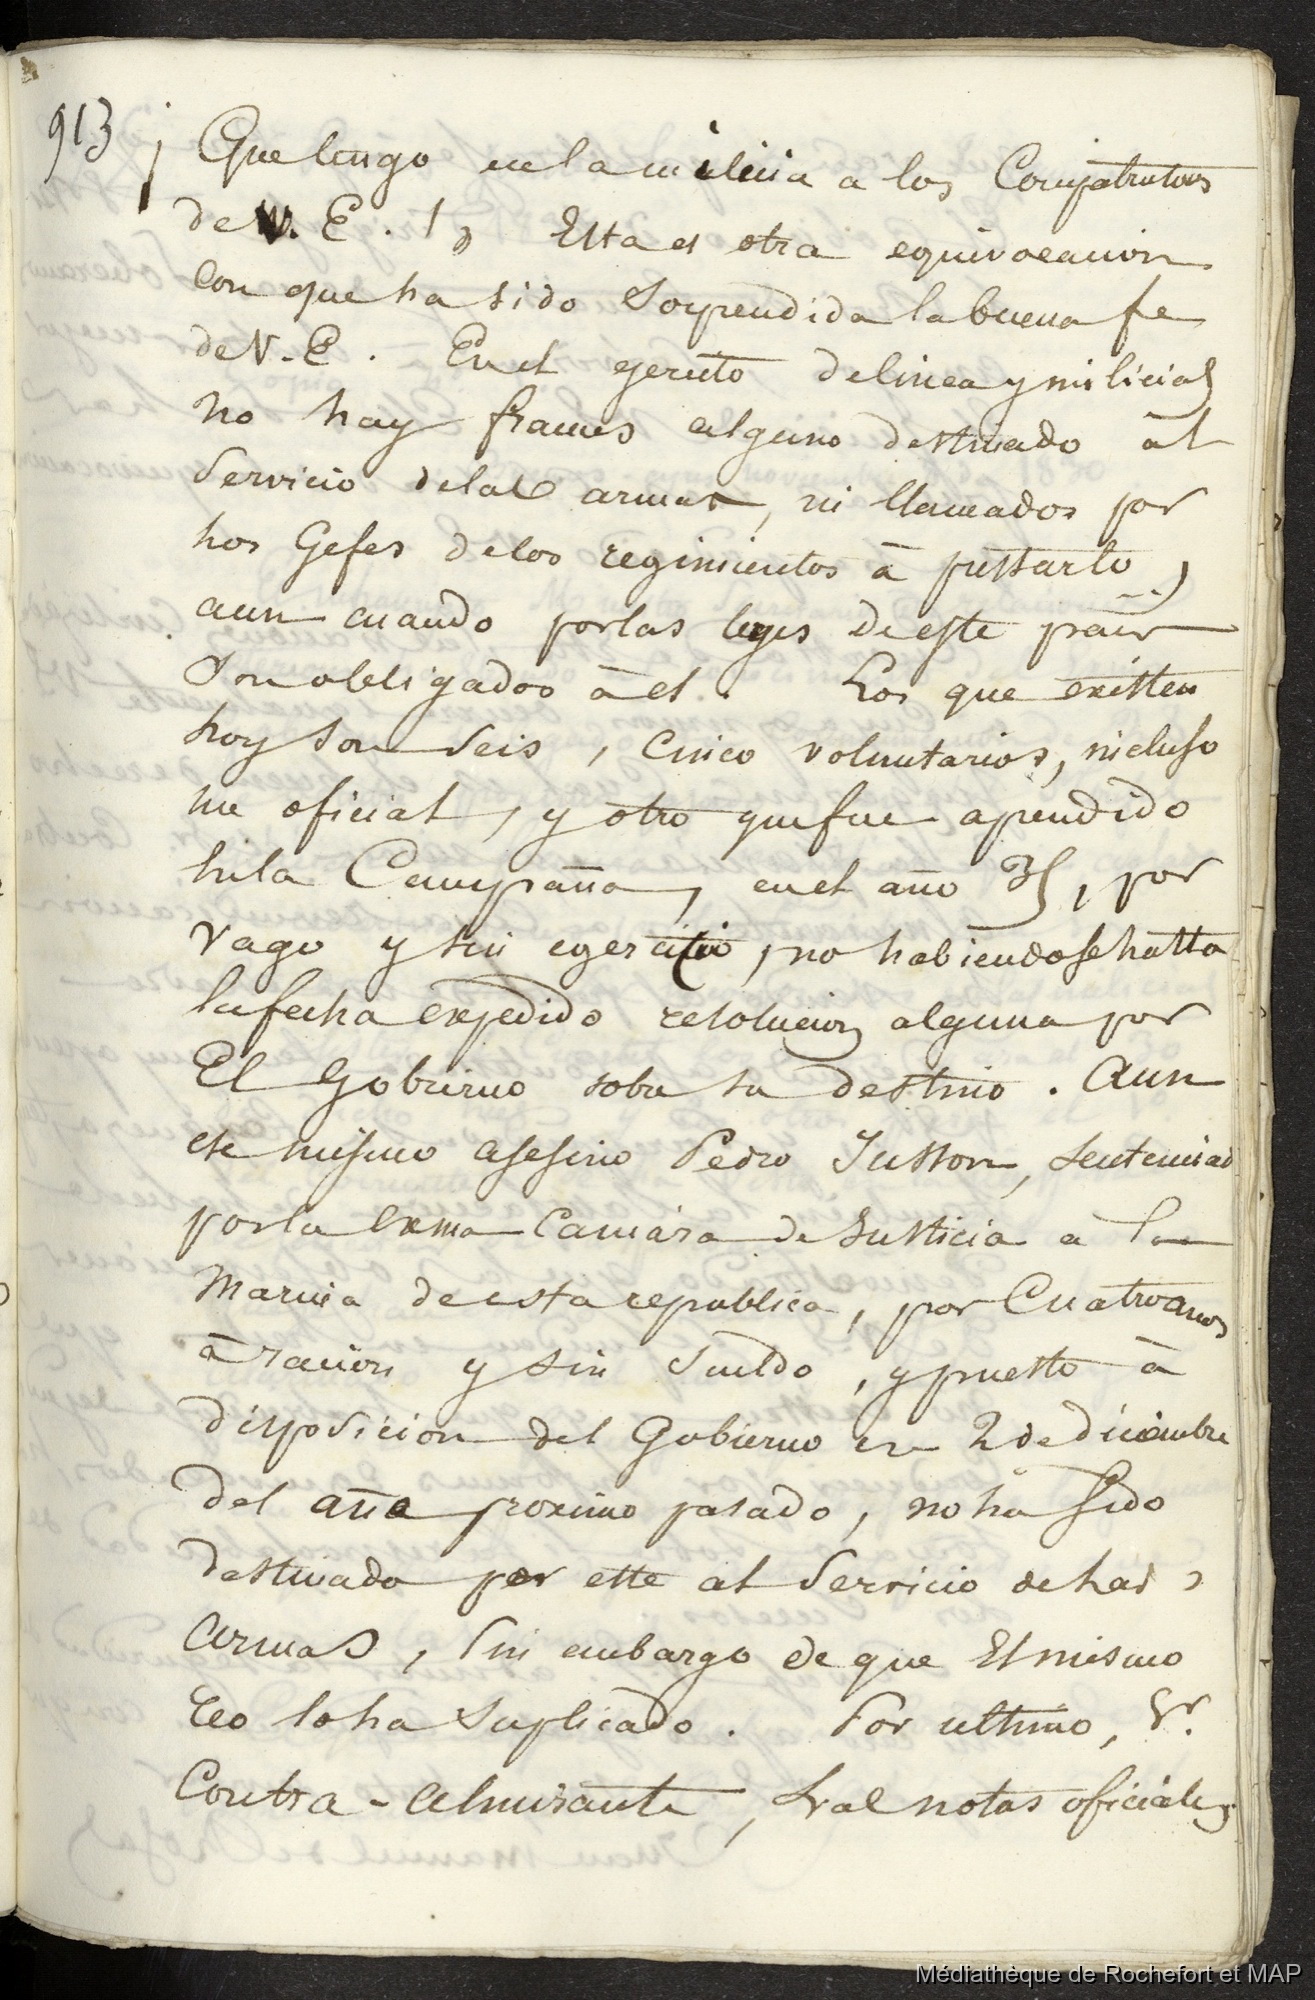 913
¡ Que tengo en la milicia a los Compatriotas
de V. E. ! Esta es otra equivocacion
con que ha sido Sorprendida la buena fe
de V. E. En el egercito de linea y milicias
no hay frances alguno destinado àl
Servicio de las armas, ni llamados por
los Gefes de los regimientos à prestarlo,
aun cuando por las leyes de este pais
Son obligados à el. Los que existen
hoy son Seis, Cinco voluntarios, incluso
un oficial, y otro que fue aprendido
en la Campaña, en el año 35, por
Vago y sin egercicio, no habiendose hasta
la fecha expedido resolucion alguna por
El Gobierno sobre su destino. Aun
ese mismo asesino Pedro Jusson, Sentenciado
por la Exma Camàra de Justicia a la
Marina de esta republica, por Cuatro anos
à racion y sin Sueldo, y puesto à
disposicion del Gobierno en 2 de diciembre
del año proximo pasado, no ha sido
destinado por este al Servicio de las
armas, Sin embargo de que El mismo
reo lo ha Suplicado. Por ultimo, Sr.
Contra-almirante, Las notas oficiales
Médiathèque de Rochefort et MAP